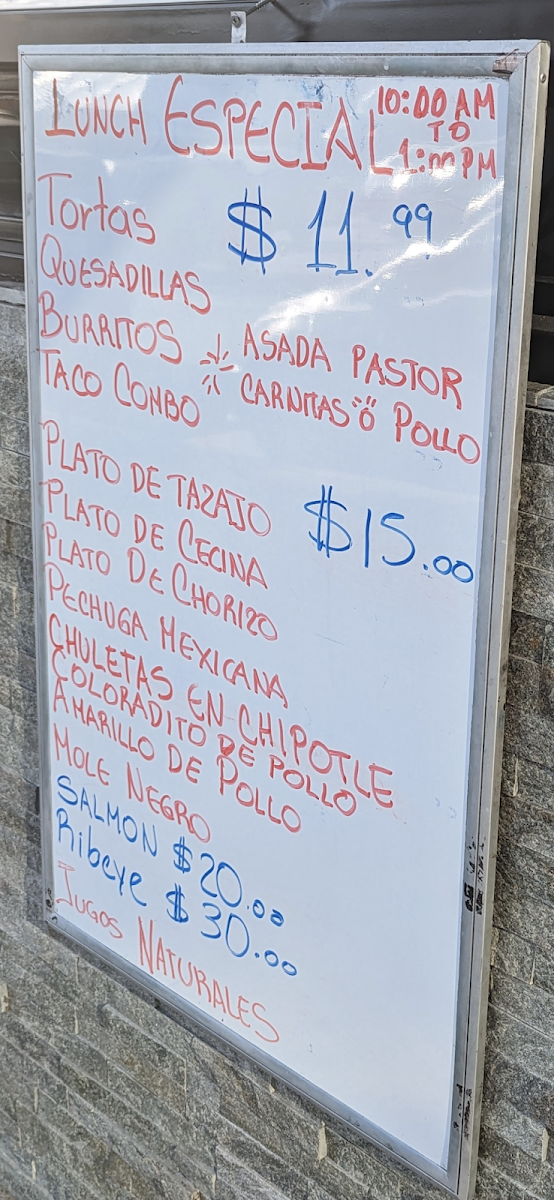 LUNCH ESPECIAL 10:00 AM
TO
1:00 PM
Tortas $ 11.99
QUESADILLAS
BURRITOS ASADA PASTOR
TACO COMBO CARNITAS Ó POLLO
PLATO DE TAZAJO $15.00
PLATO DE CECINA
PLATO DE CHORIZO
PECHUGA MEXICANA
CHULETAS EN CHIPOTLE
COLORADITO DE POLLO
AMARILLO DE POLLO
MOLE NEGRO
SALMON $20.00
Ribeye $30.00
JUGOS NATURALES